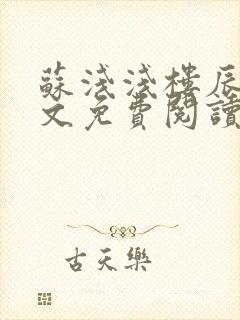 蘇淺淺樓辰
文免費閱讀
古天樂